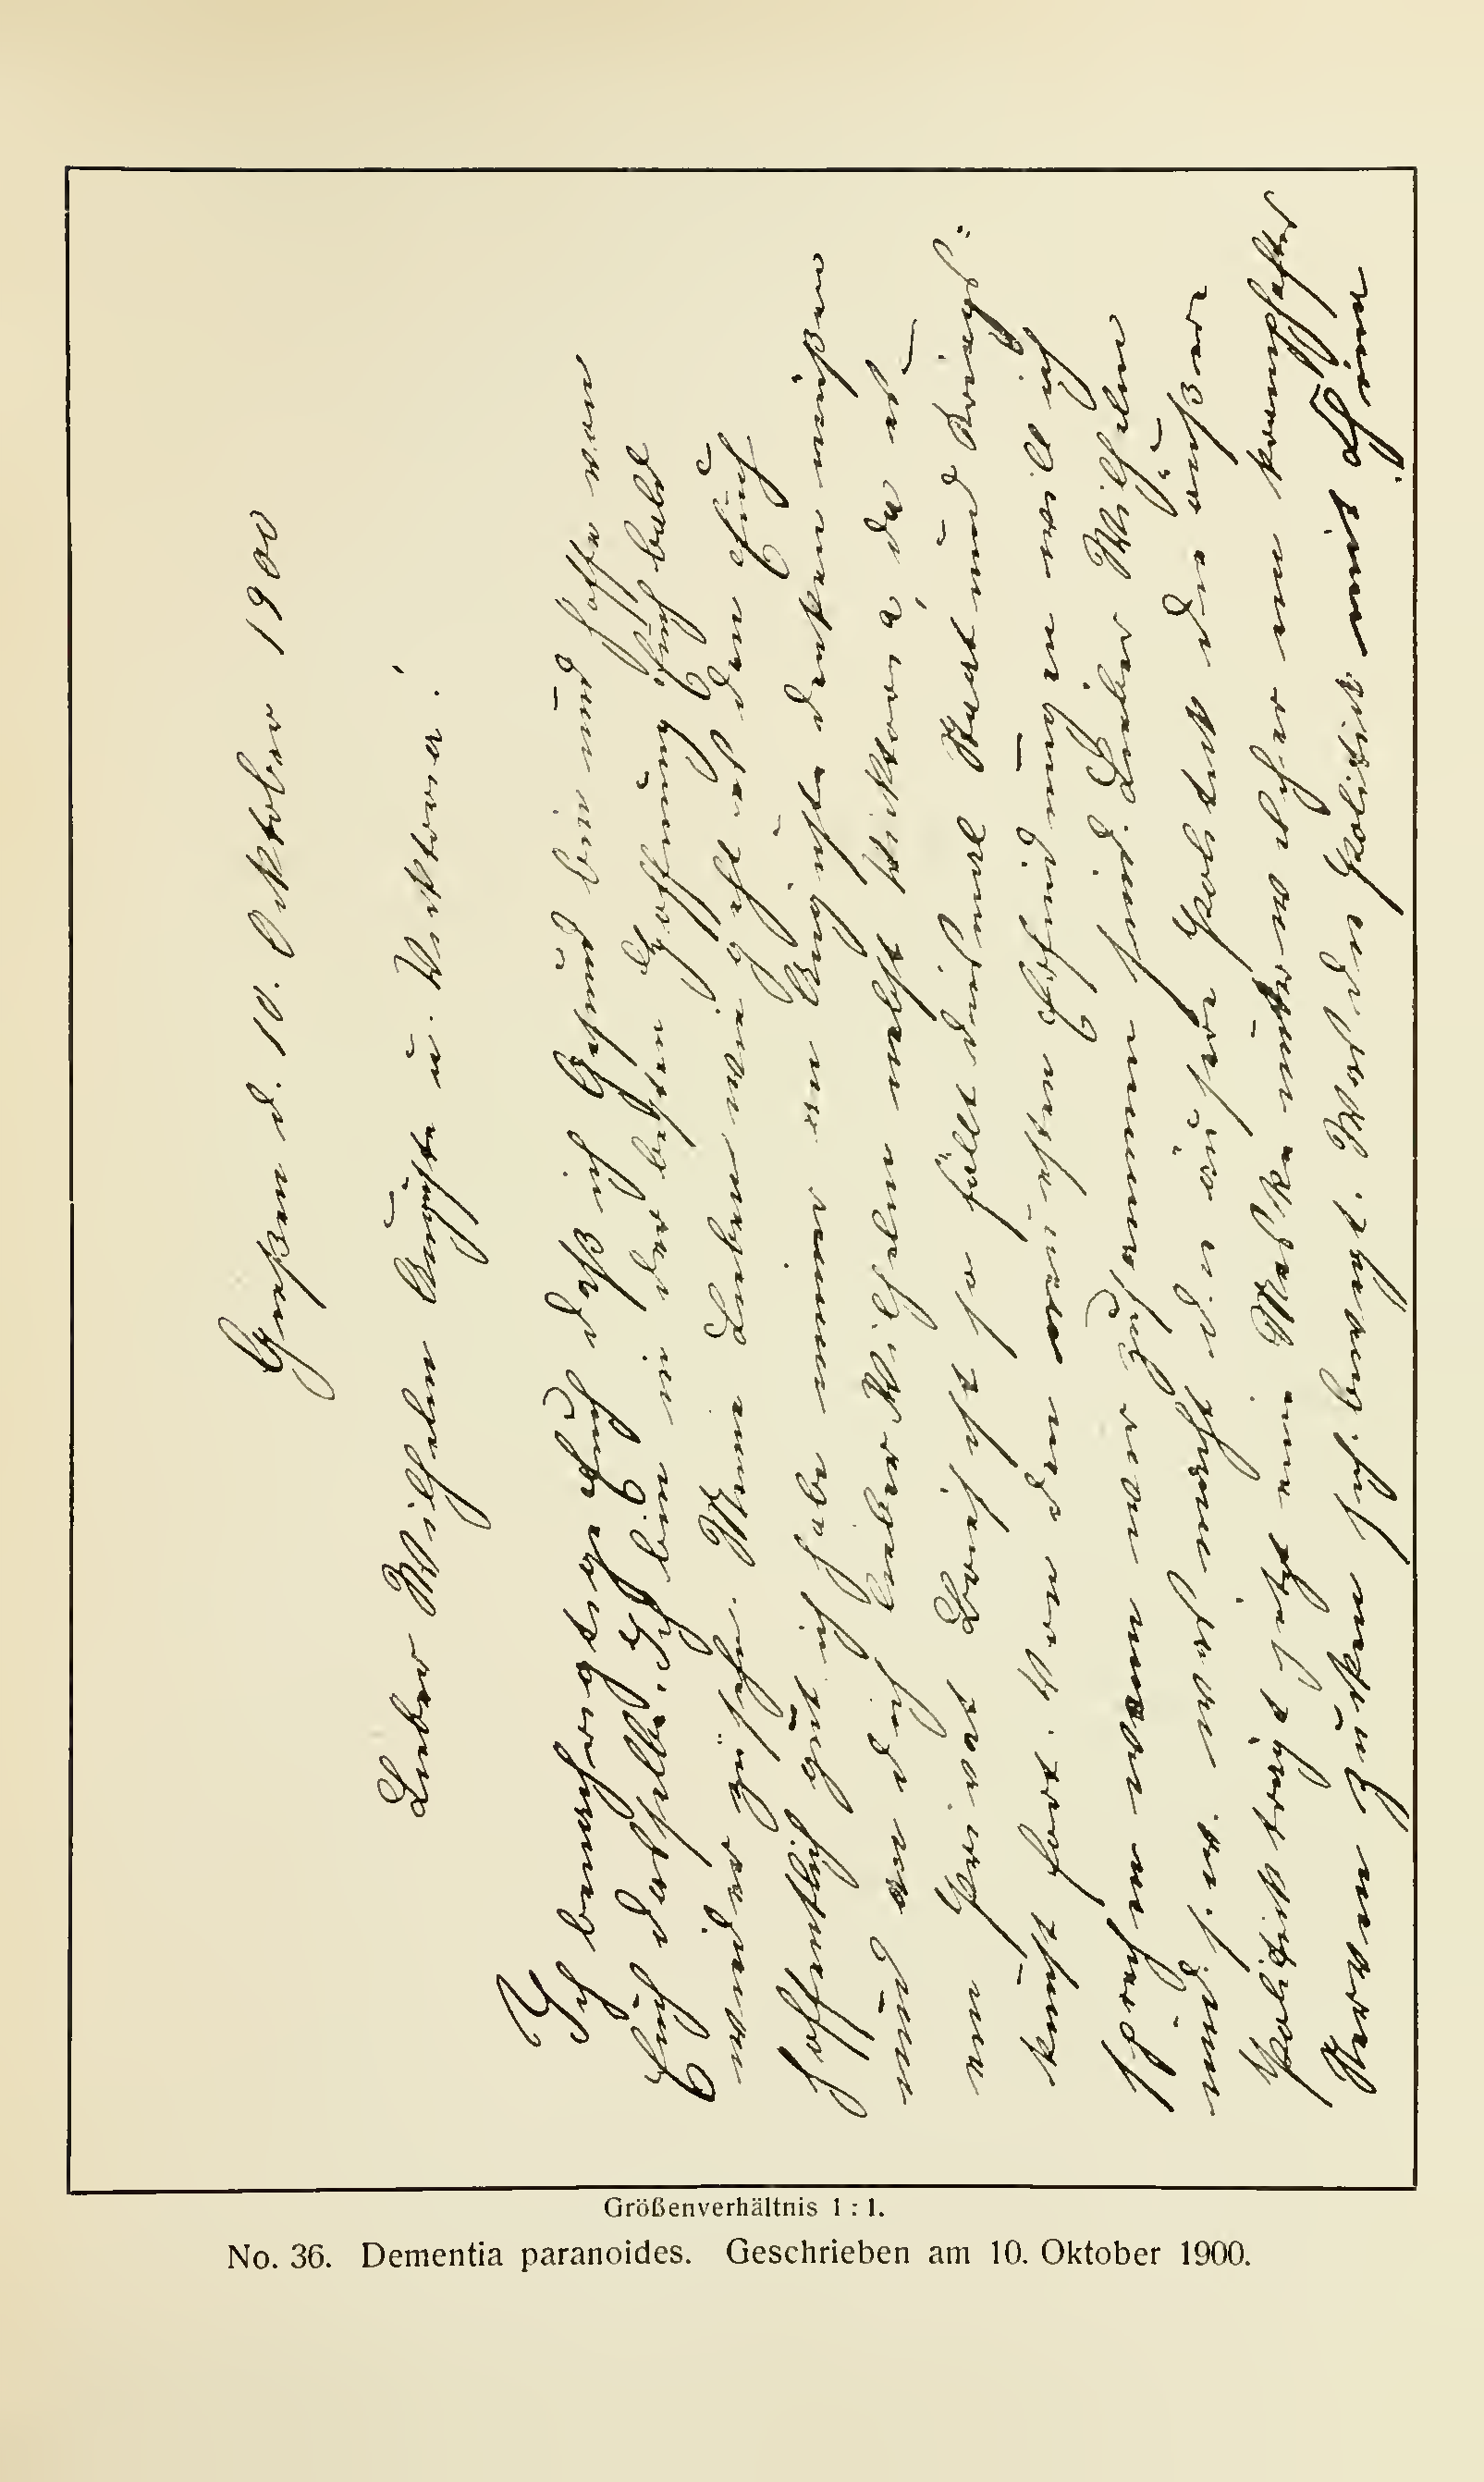 Gießen d. 10. Oktober 1900
Lieber Wilhelm Auguste u. Viktoria!
Ich benachrigtige Euch daß ich Gesund bin und hoffe von
Euch dasselbe. Ich bin in der besten Hoffnung Euch bald
wieder zu sehn. Mein Leben wie geht es den Euch
hoffentlich gut ich habe immer an Auguste denken müßen
und an dich lieber Wilhelm nebst Viktoria, da es
im Privat so fält dir das und Kriegs=
kunst fort. Von den neusten Erfindungen will ich
sprechen wenn wir zusammen sind Lieber Wilhelm
und s. w. was macht die äußere
Politik trägt jetzt ein unter welcher krampfhaftes
Nerven zucken sich bewegt. Was den Politik mit
Größenverhältnis 1 : 1.
No. 36. Dementia paranoides. Geschrieben am 10. Oktober 1900.